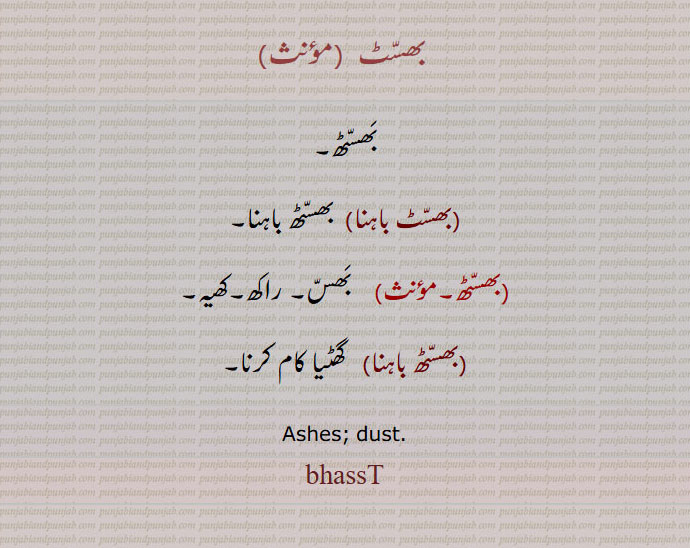 بھسّٹ (مؤنث)
بَھسّٹھ۔
(بھسّٹ باہنا) بھسّٹھ باہنا۔
(بھسّٹھ۔مؤنث) بَھسّ۔ راکھ۔کھیہ۔
(بھسّٹھ باہنا) گھٹیا کام کرنا۔
Ashes; dust.
bhassT